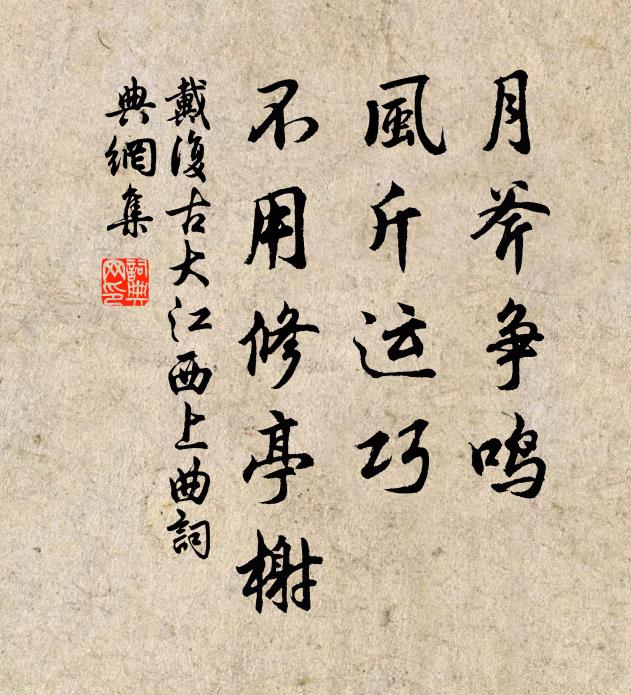 月斧争鸣
風斤运巧
不用修亭榭
戴復古大江西上曲詞
典網集
詞典网印